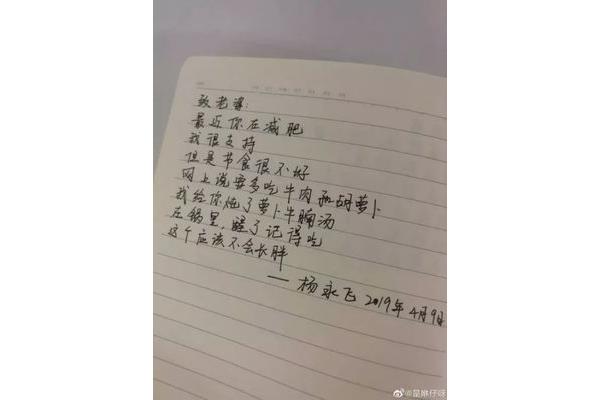 致老婆：
最近你在减肥
我很支持
但是节食很不好
网上说要多吃牛肉和胡萝卜
我给你炖了萝卜牛腩汤
在锅里，醒了记得吃
这个应该不会长胖
——杨永飞 2019年4月9日